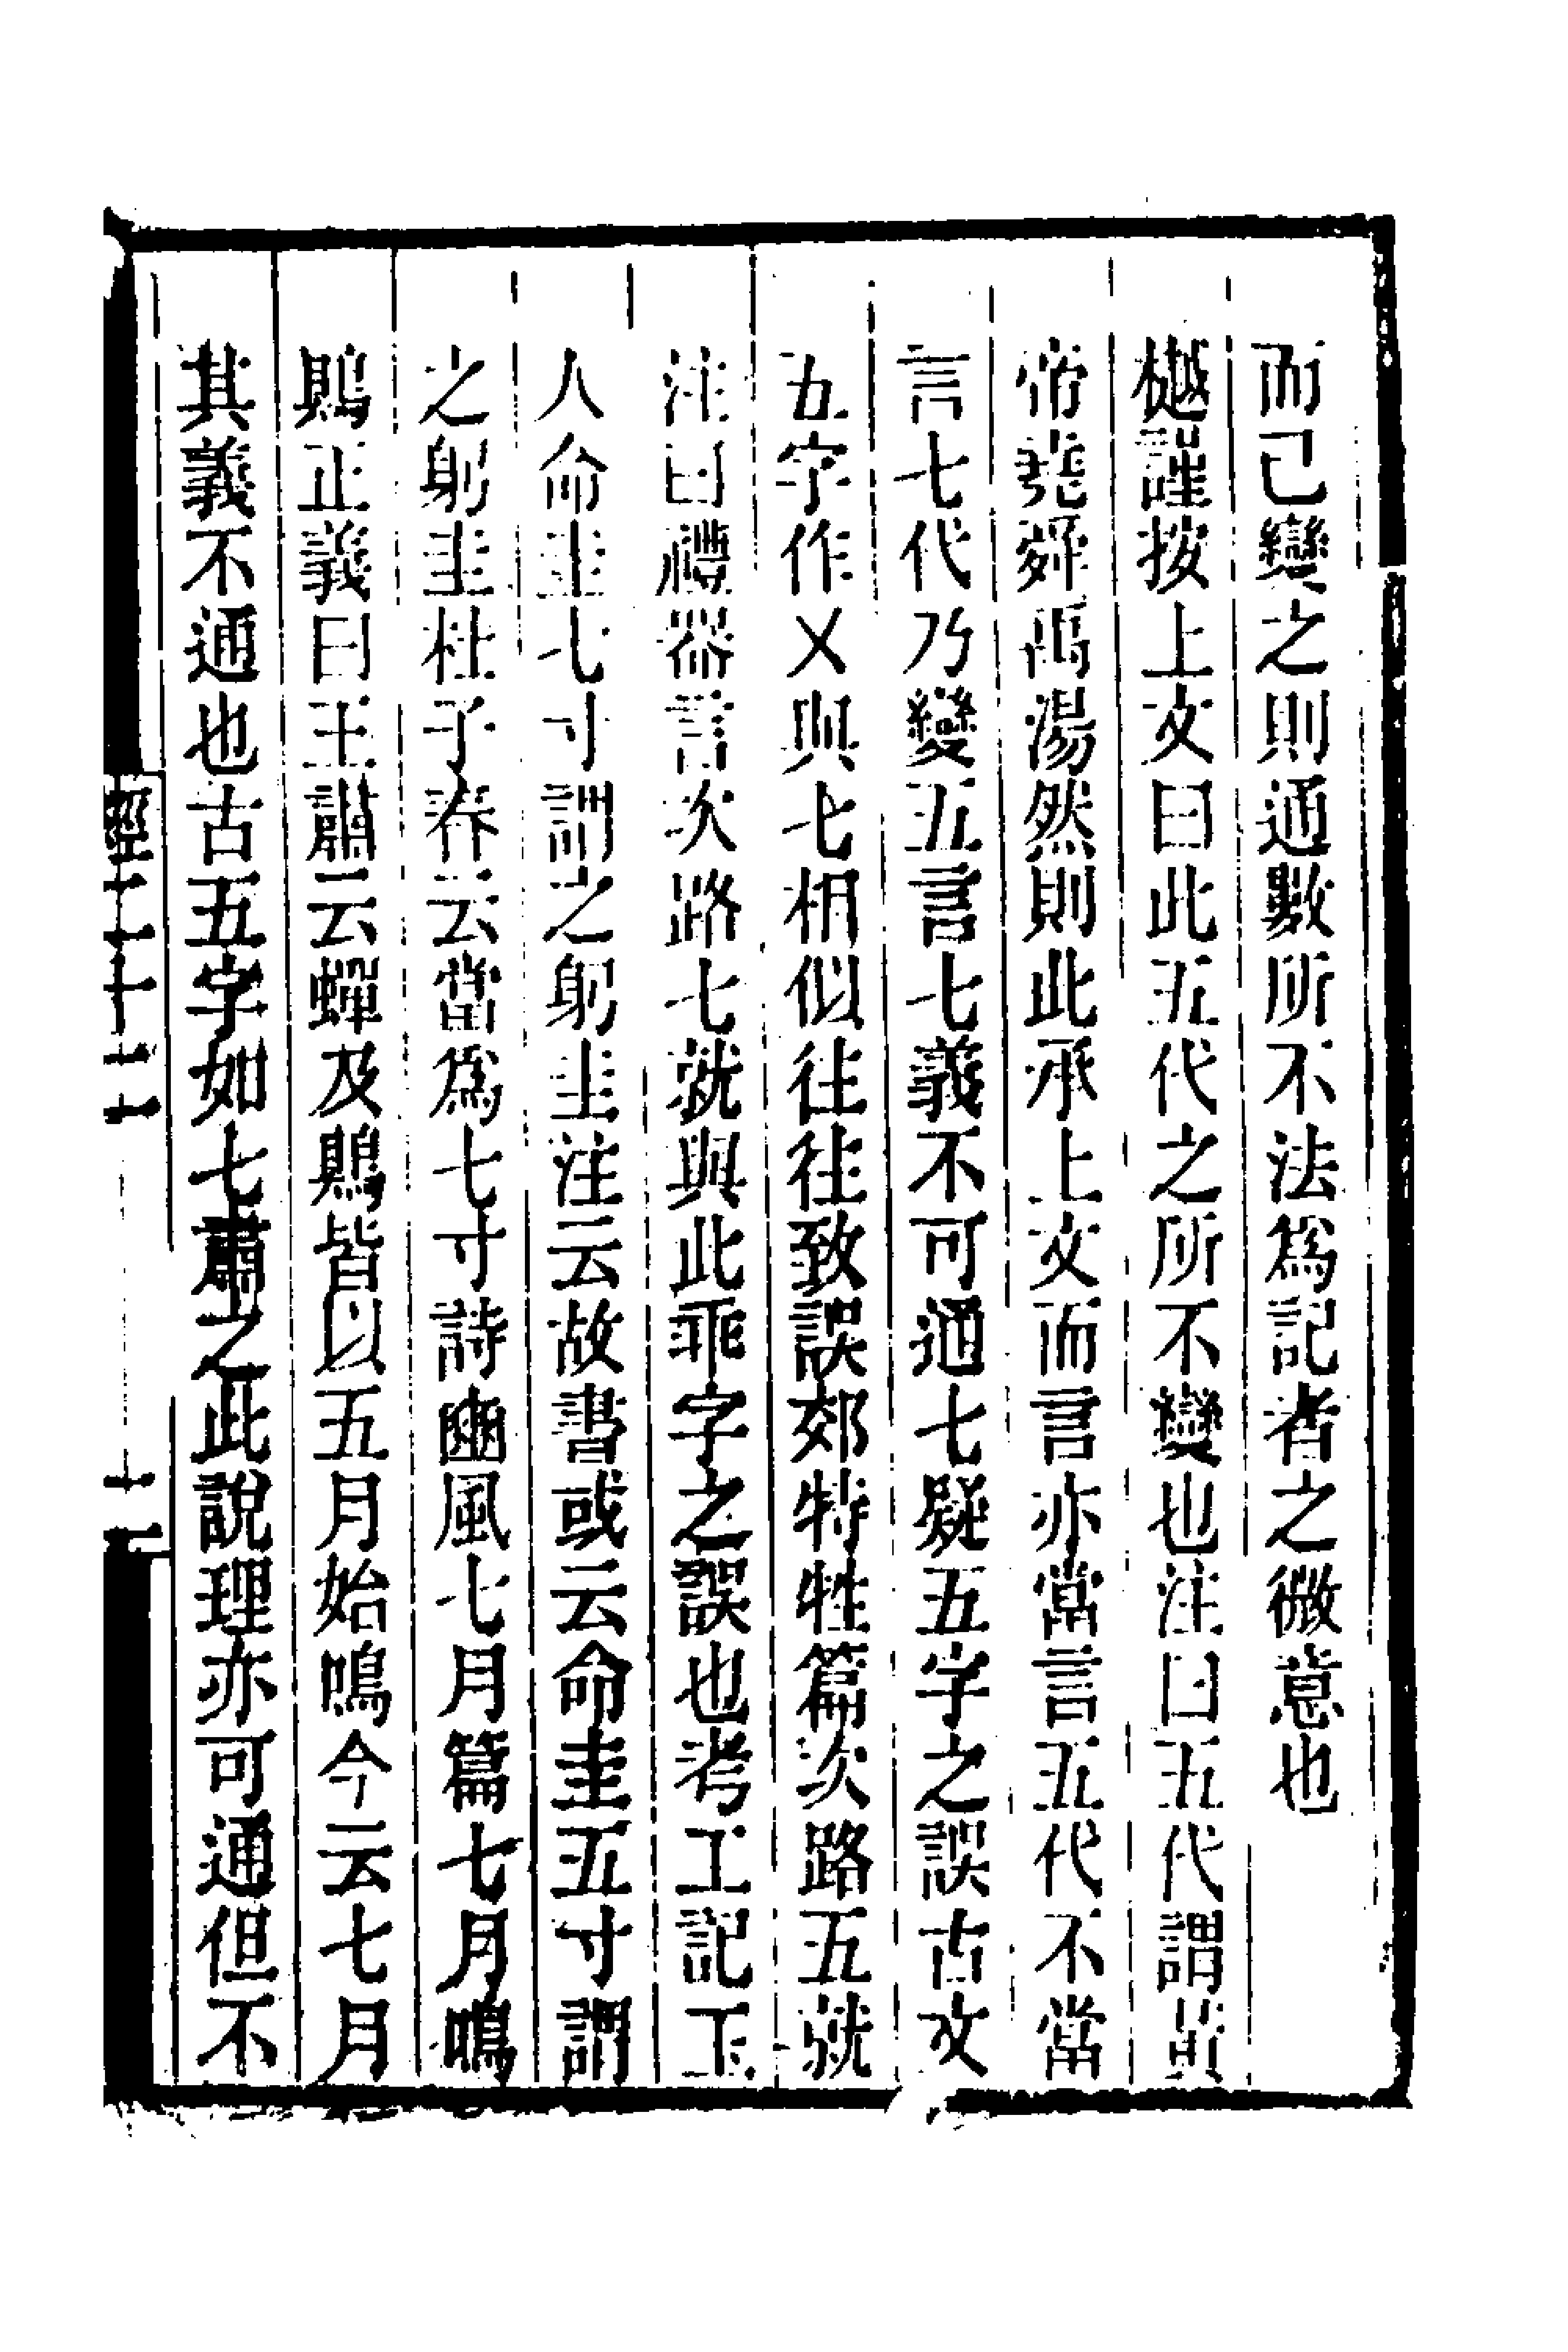 而已變之則通數所不法為記者之微意也
樾謹按上文曰此五代之所不變也注曰五代謂黃
帝堯舜禹湯然則此承上文而言亦當言五代不當
言七代乃變五言七義不可通七疑五字之誤古文
五字作㐅與七相似往往致誤郊特牲篇次路五就
注曰禮器言次路七就與此乖字之誤也考工記玉
人命圭七寸謂之躬圭注云故書或云命圭五寸謂
之躬圭杜子春云當爲七寸詩豳風七月篇七月鳴
鵙正義曰王肅云蟬及鵙皆以五月始鳴今云七月
其義不通也古五字如七肅之此說理亦可通但不
經二十二
十一